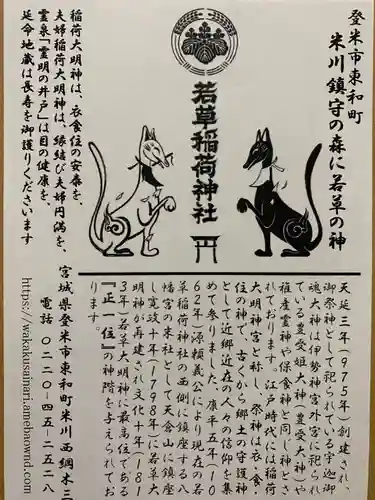 登米市東和町
米川鎮守の森に若草の神
若草稲荷神社
稲荷大明神は、衣食住の安泰を、
夫婦稲荷大明神は、縁結び夫婦円満を、
霊泉「霊明の井戸」は目の健康を、
延命地蔵は長寿を御護りくださいます
天延三年(975年)創建され、
御祭神として祀られている宇迦御
魂大神は伊勢神宮外宮に祀られ
ている豊受姫大神(豊受大神)や
稚産霊神や保食神と同じ神とさ
れております。江戸時代には稲荷
大明神宮と称し、祭神は衣、食、
住の神で、古くから郷土の守護神
として近郷近在の人々の信仰を集
めて参りました。康平五年(10
62年)源頼義公により現在の若
草稲荷神社の西側に鎮座する八
幡宮の末社として天倉山に鎮座
し寛政十年(1798年)に若草大
明神が再建され文化十年(181
3年)若草大明神に最高位である
『正一位』の神階を与えられてお
ります。
宮城県登米市東和町米川西綱木三
電話 〇二二〇-四五-二五二八
https://wakakusainari.amebaownd.com